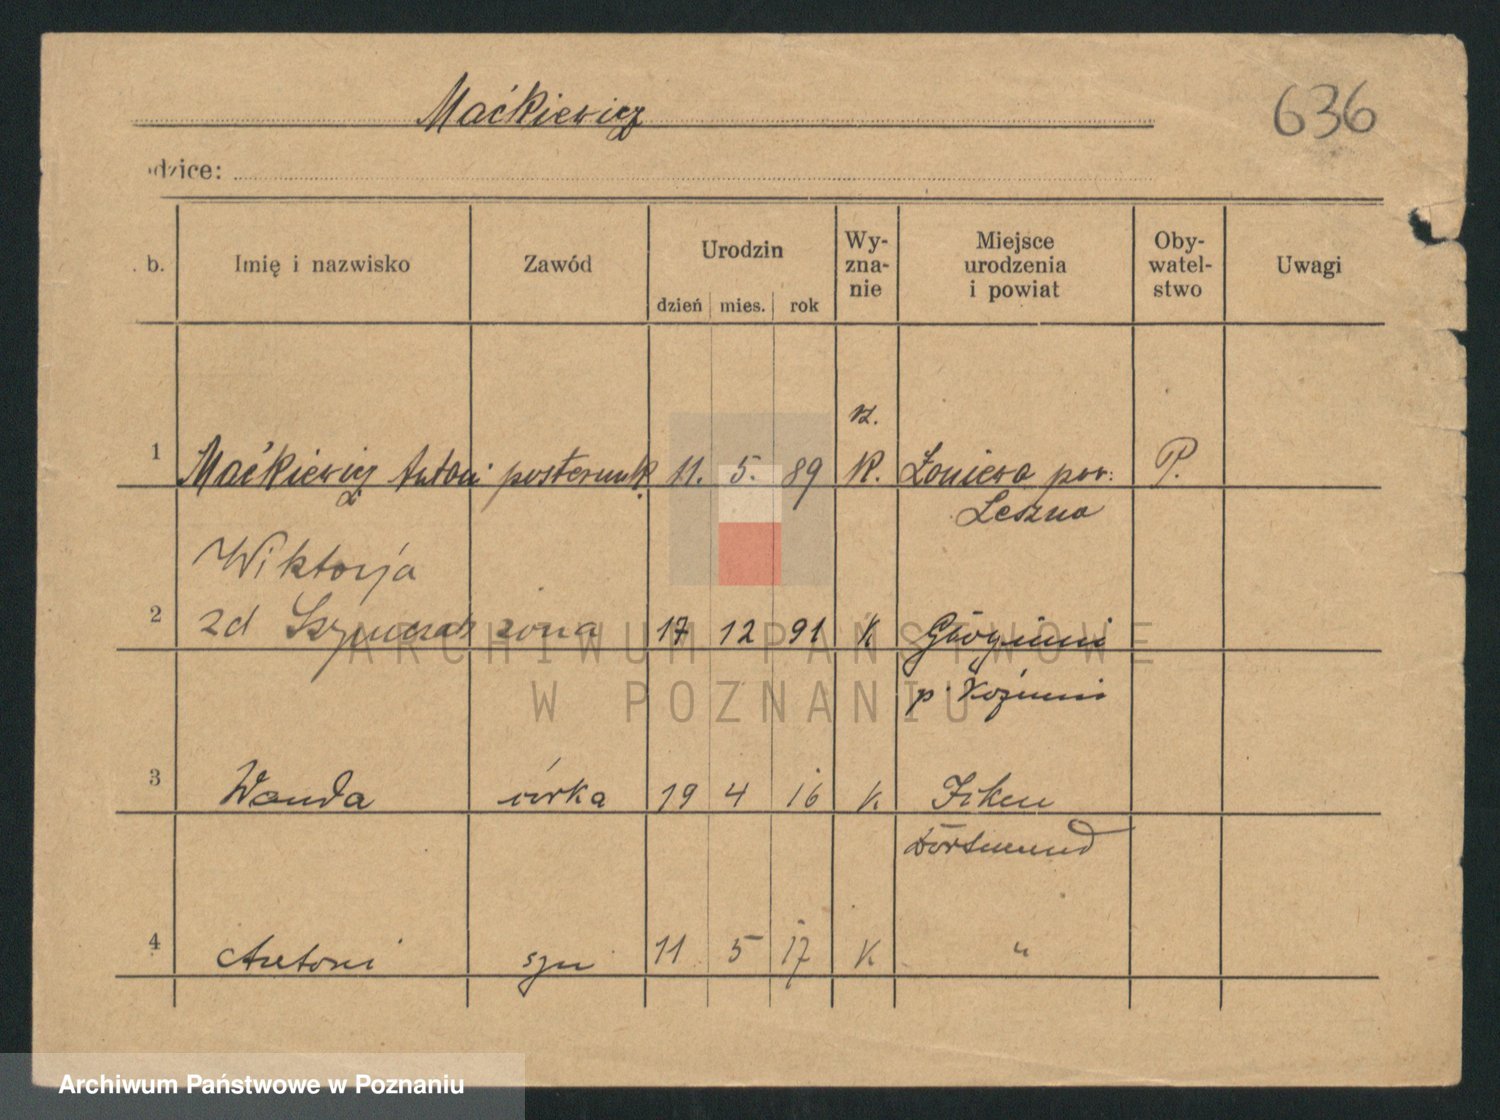 Maćkiewicz
636
dzice:
b.
Imię i nazwisko
Zawód
Urodzin
dzień mies. rok
Wy-
zna-
nie
Miejsce
urodzenia
i powiat
Oby-
watel-
stwo
Uwagi
rz.
1 Maćkiewicz Antoni posterunk. 11. 5. 89 K. Łoniewo pow:
P.
Leszno
Wiktorja
2 zd żona 17 12 91 K
p. Koźmin
3 Wanda córka 19 4 16 K
Dortmund
4 Antoni syn 11 5 17 K "
ARCHIWUM PAŃSTWOWE
W POZNANIU
Archiwum Państwowe w Poznaniu